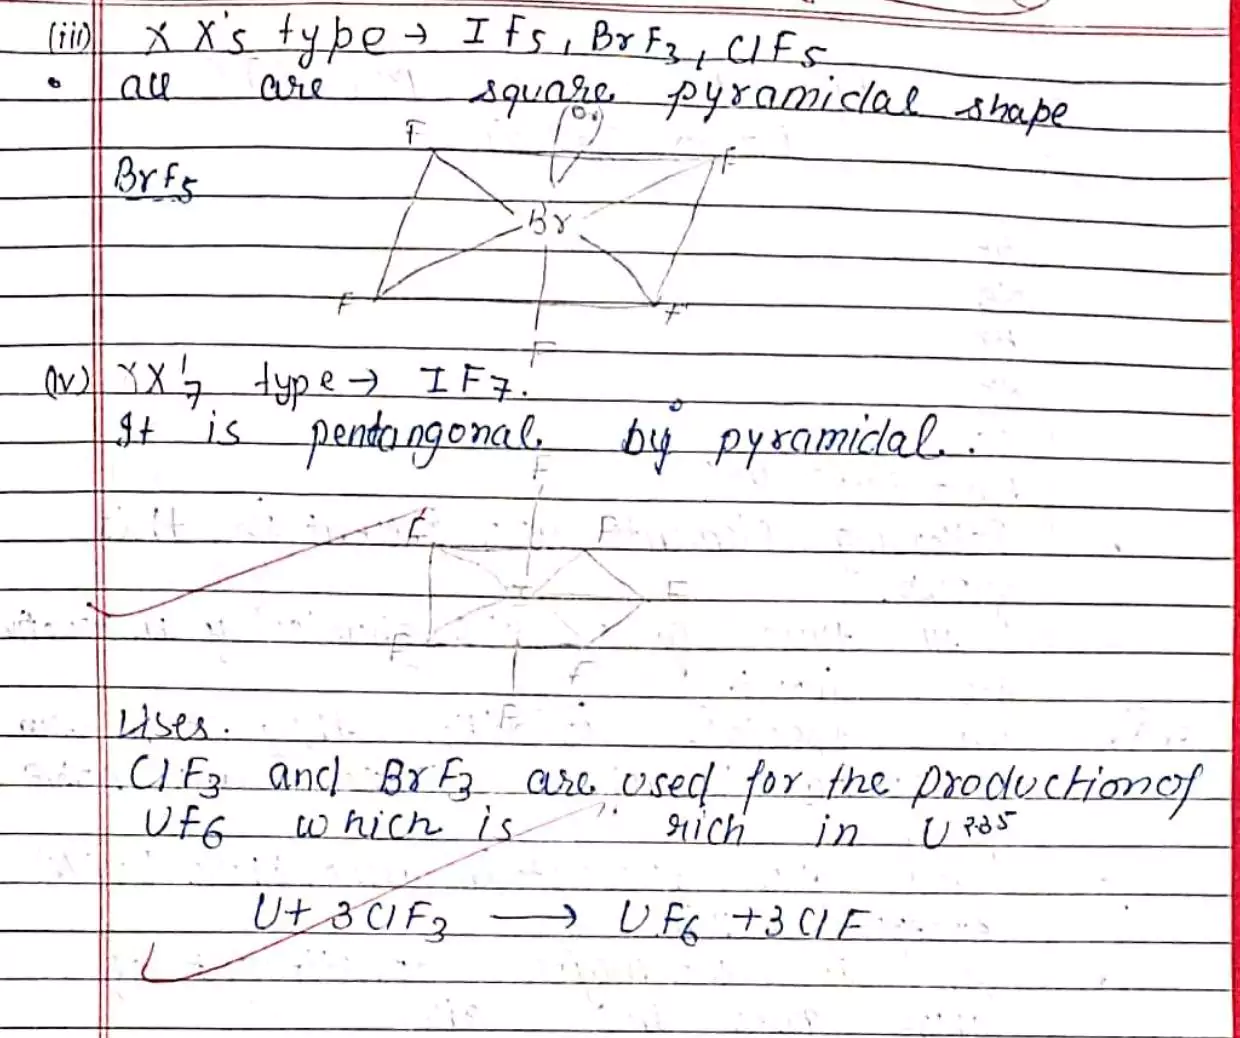 (iii) X X'5 type → I F5, BrF3, ClF5
• all are square pyramidal shape
F F
BrF5
Br
F F
F
(iv) XX'7 type → IF7.
It is pentangonal by pyramidal.
F
F F
I F
F F
F
Uses.
ClF3 and BrF3 are used for the production of
UF6 which is rich in U 235
U + 3ClF3 → UF6 + 3ClF